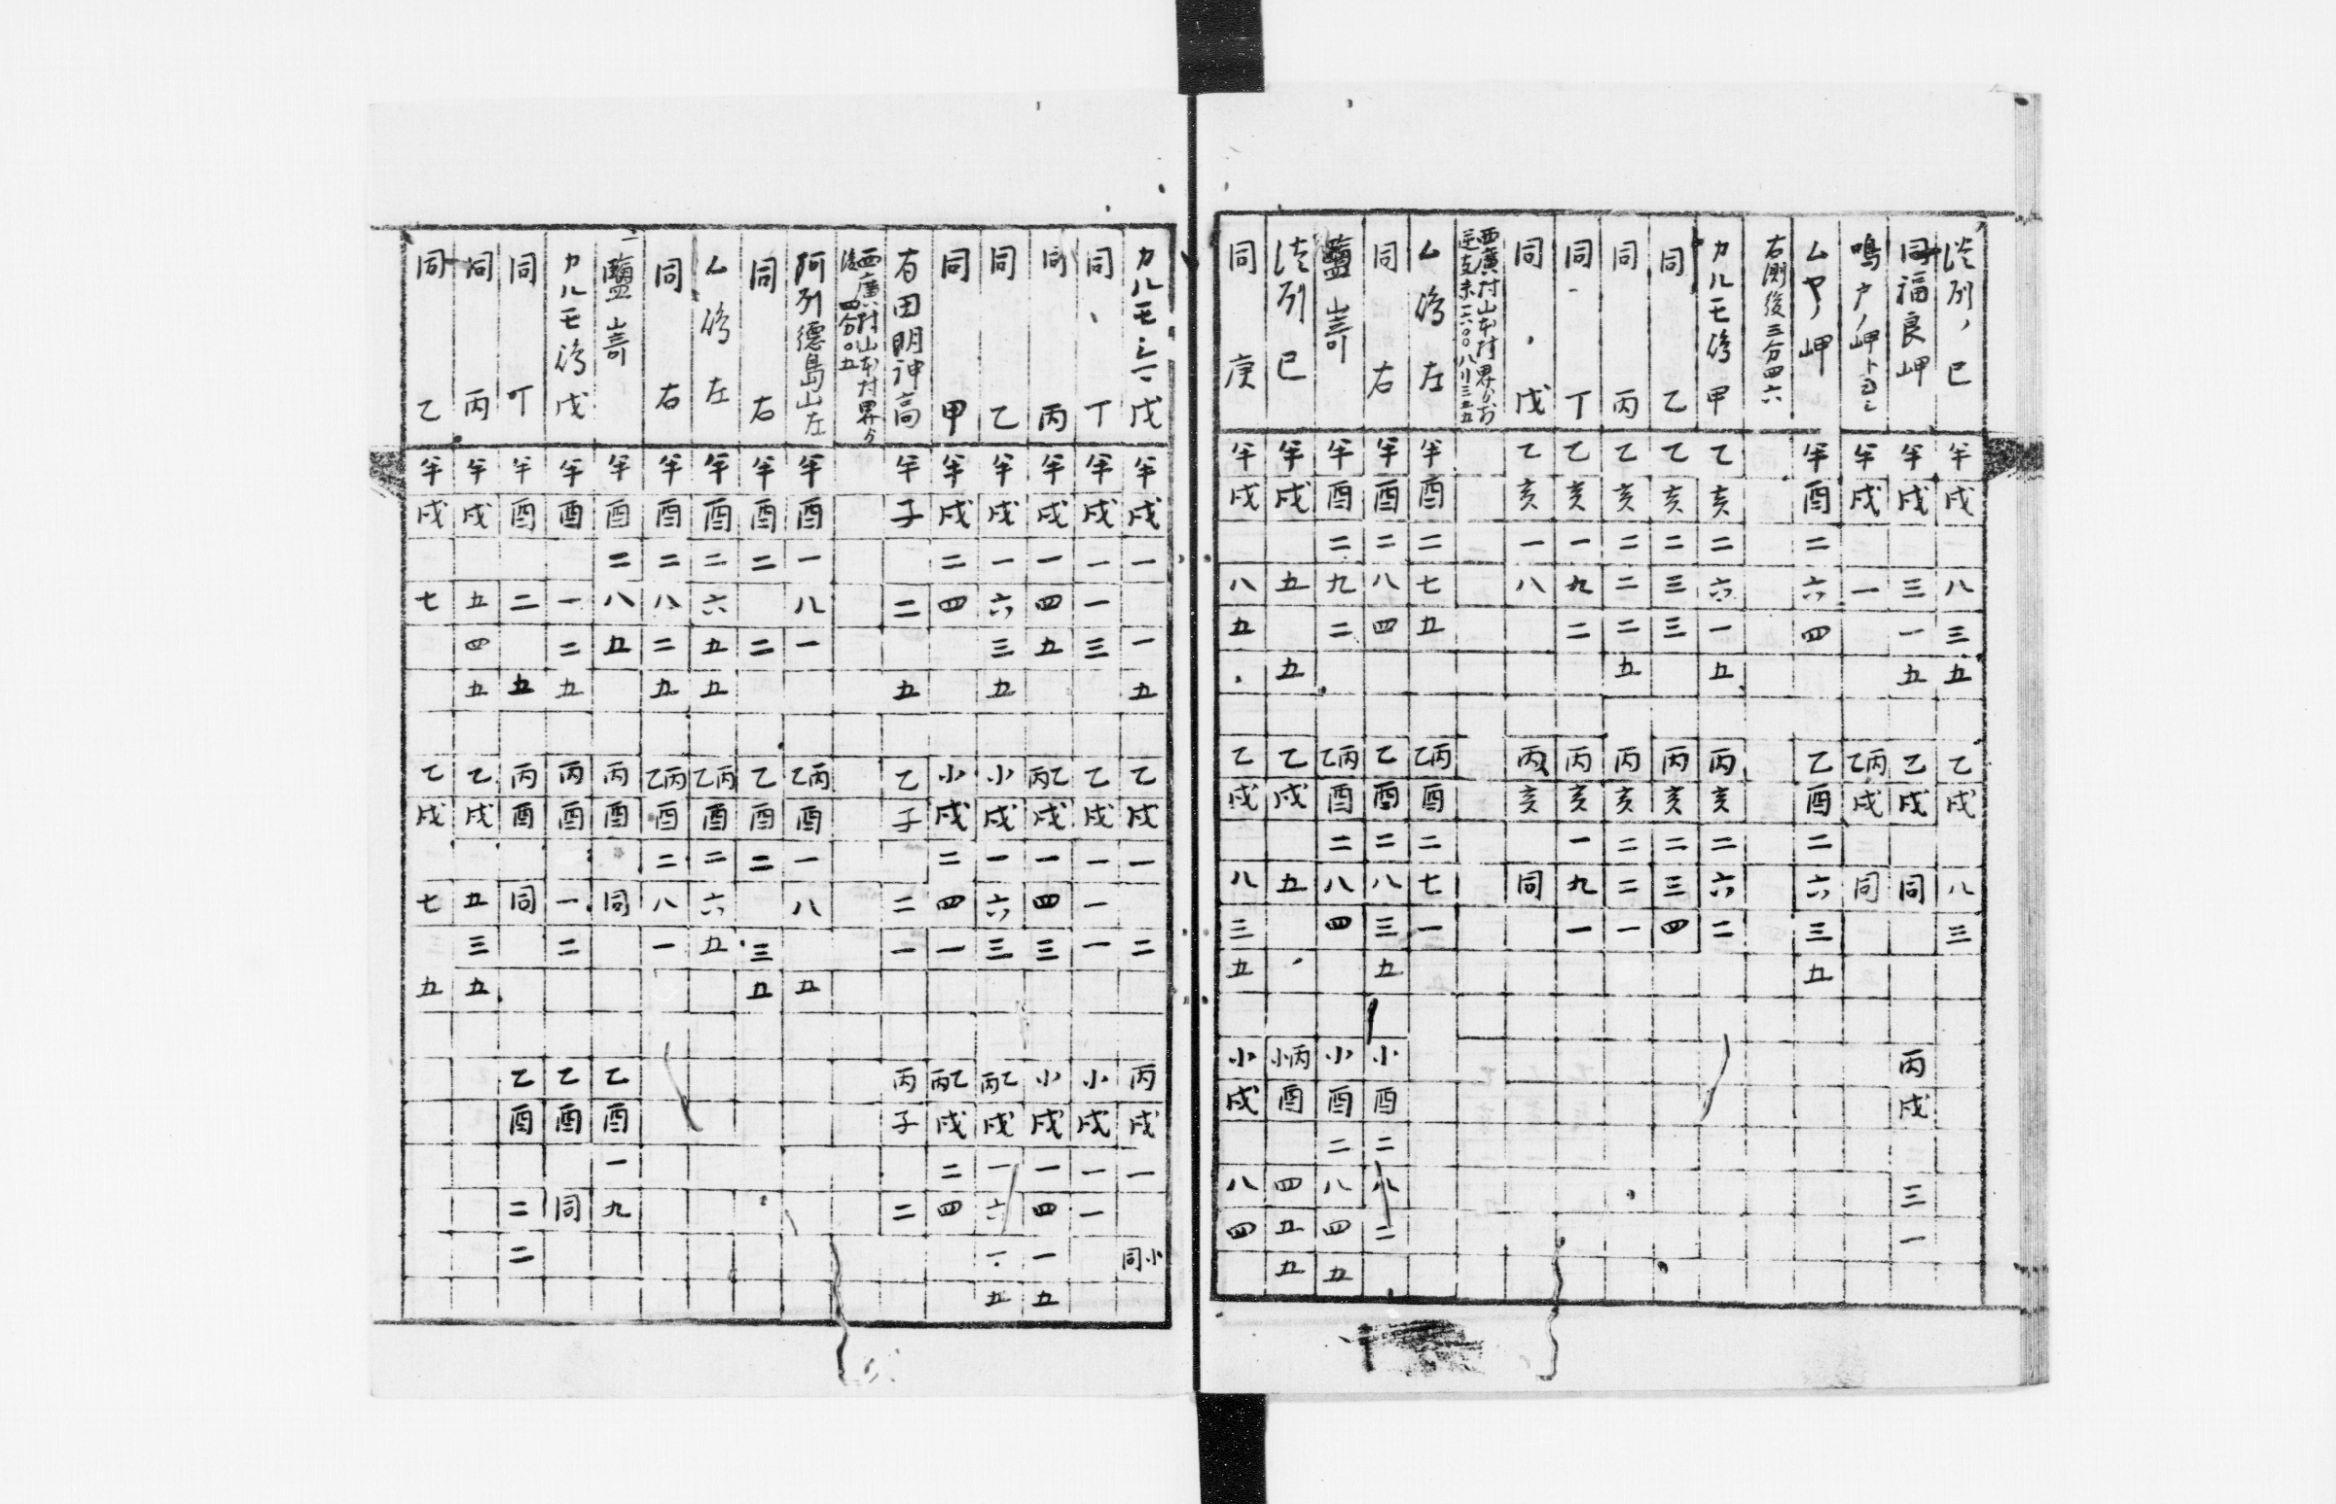 淡刕ノ巳 半戌八三五 乙戌八三
同福良岬 半戌三一五 乙戌同 丙戌三一
鳴戸ノ岬 半戌一 乙丙戌同
ムヤノ岬 半酉二六四 乙酉二六三五
右側後三分四六
カルモ 甲 乙亥二六一五 丙亥二六二
同 乙 乙亥二三三 丙亥二三四
同 丙 乙亥二二二五 丙亥二二一
同 丁 乙亥一九二 丙亥一九一
同 戊 乙亥一八 丙亥同
西廣村山本村界
ム 左 半酉二七五 乙丙酉二七一
同 右 半酉二八四 乙酉二八三五 小酉二八二
鹽嵜 半酉二九二 乙丙酉二八四 小酉二八四五
淡刕 巳 半戌五五 乙戌五 小丙酉四五五
同 庚 半戌八五 乙戌八三五 小戌八四
カルモ 戊 半戌一一五 乙戌一二 丙戌一 小同
同 丁 半戌一一三 乙戌一一一 小戌一一
同 丙 半戌一四五 丙乙戌一四三 小戌一四一五
同 乙 半戌一六三五 小戌一六三 丙乙戌一六一五
同 甲 半戌二四 小戌二四一 丙乙戌二四
有田明神高 半子二五 乙子二一 丙子二
西廣村山本村界 四分〇五
阿刕德島山左 半酉一八一 乙丙酉一八五
同 右 半酉二二 乙酉二三五
ム 左 半酉二六五五 乙丙酉二六五
同 右 半酉二八二五 乙丙酉二八一
鹽嵜 半酉二八五 丙酉同 乙酉一九
カルモ 戊 半酉一二五 丙酉一二 乙酉同
同 丁 半酉二五 丙酉同 乙酉二二
同 丙 半戌五四五 乙戌五三五
同 乙 半戌七 乙戌七五